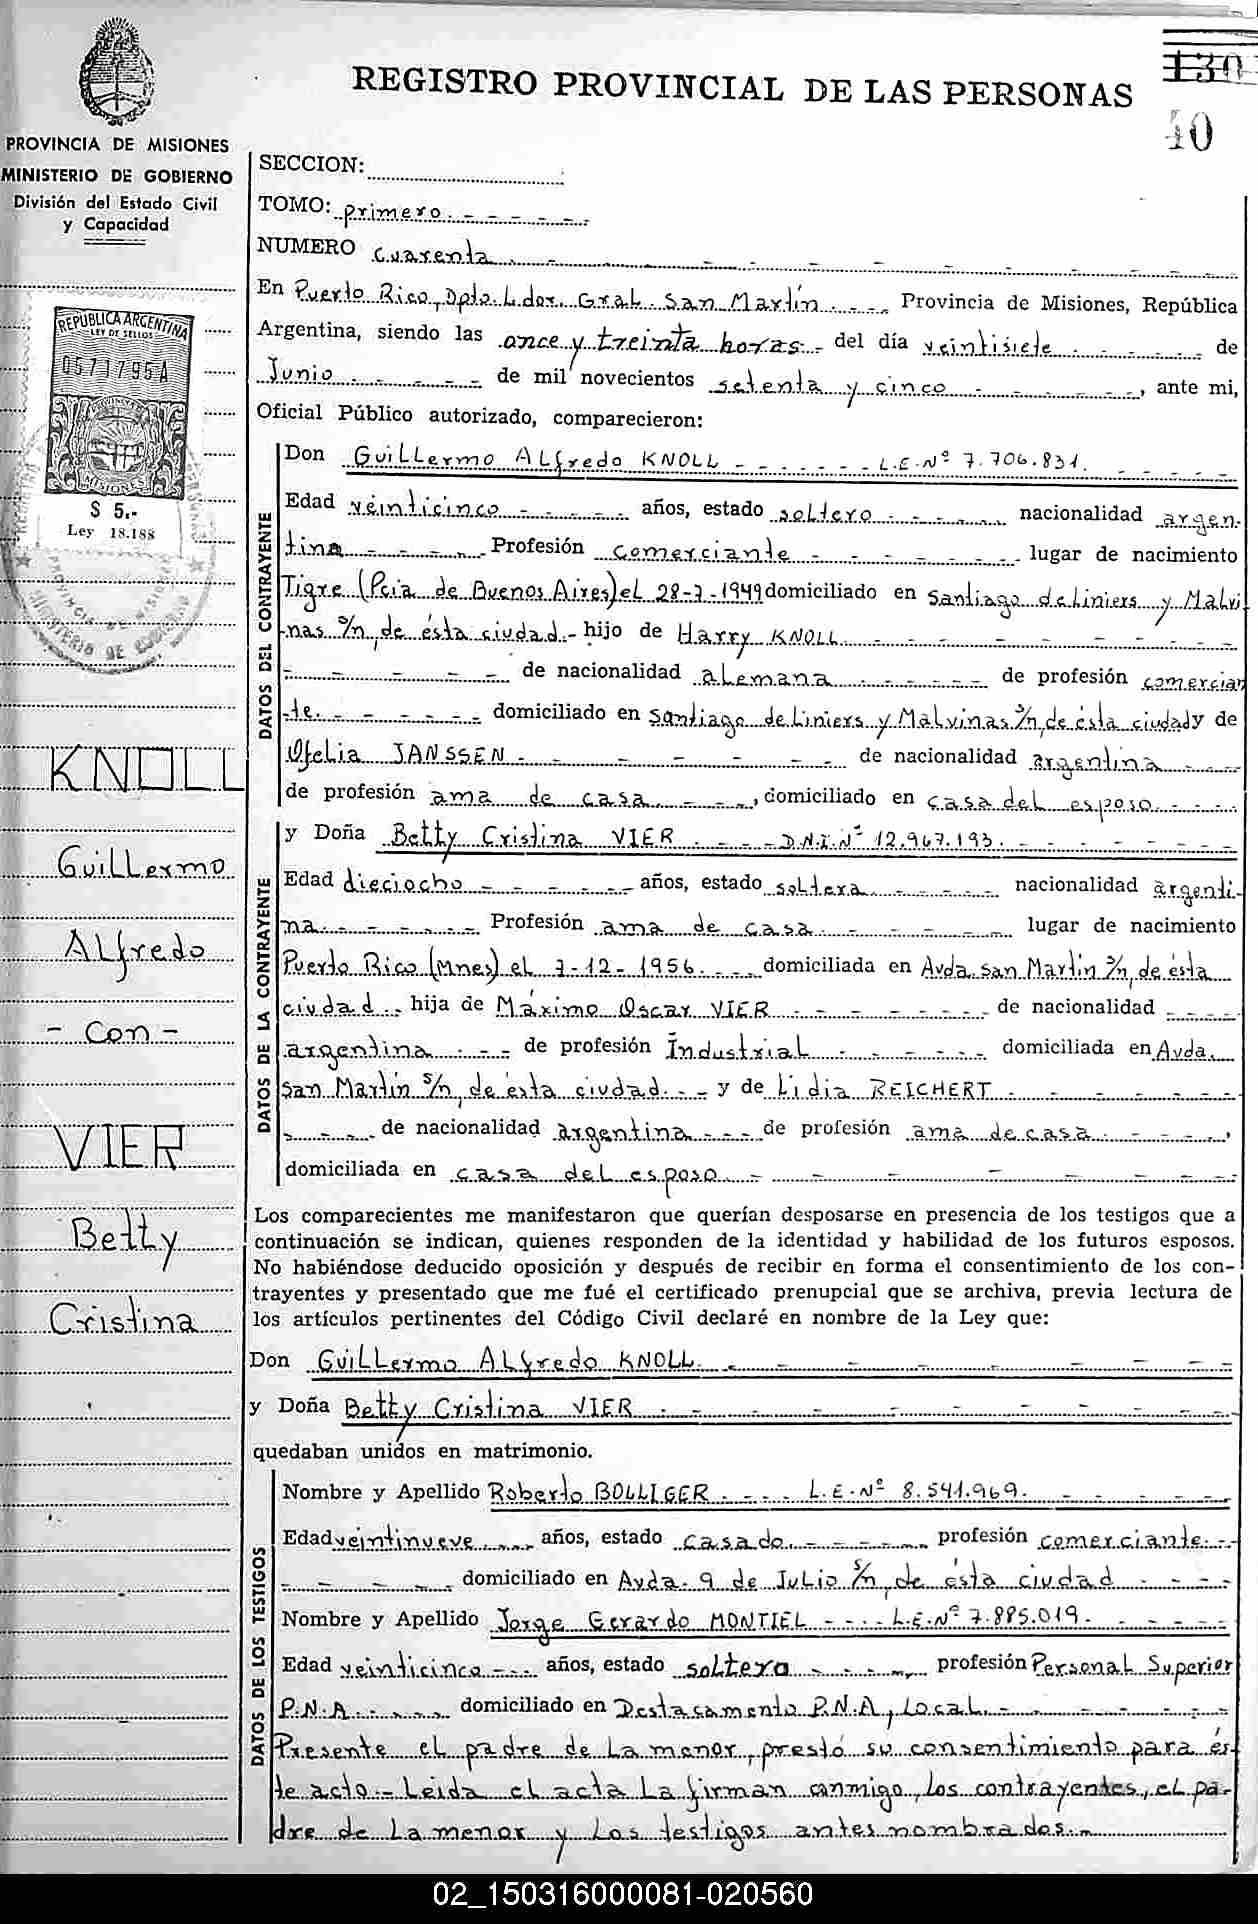 REGISTRO PROVINCIAL DE LAS PERSONAS
130
40
PROVINCIA DE MISIONES
MINISTERIO DE GOBIERNO
División del Estado Civil
y Capacidad
REPUBLICA ARGENTINA
LEY DE SELLOS
0571795A
MISIONES
$ 5.-
Ley 18.188
KNOLL
Guillermo
Alfredo
- Con -
VIER
Betty
Cristina
SECCION:
TOMO: primero.
NUMERO cuarenta
En Puerto Rico, Dpto. L.dor. Gral. San Martín. Provincia de Misiones, República
Argentina, siendo las once y treinta horas del día veintisiete de
Junio de mil novecientos setenta y cinco, ante mi,
Oficial Público autorizado, comparecieron:
DATOS DEL CONTRAYENTE
Don Guillermo Alfredo KNOLL - L.E.Nº 7.706.831.
Edad veinticinco años, estado soltero nacionalidad argen-
tina Profesión comerciante lugar de nacimiento
Tigre (Pcia de Buenos Aires) el 28-7-1949 domiciliado en Santiago de Liniers y Malvi
nas s/n, de ésta ciudad.- hijo de Harry KNOLL
de nacionalidad alemana de profesión comercian
te. domiciliado en Santiago de Liniers y Malvinas s/n, de ésta ciudad y de
Ofelia JANSSEN de nacionalidad argentina
de profesión ama de casa, domiciliado en casa del esposo.
DATOS DE LA CONTRAYENTE
y Doña Betty Cristina VIER - D.N.I.Nº 12.967.193.
Edad dieciocho años, estado soltera nacionalidad argenti-
na. Profesión ama de casa lugar de nacimiento
Puerto Rico (Mnes) el 7-12-1956. domiciliada en Avda. San Martín s/n, de ésta
ciudad.- hija de Máximo Oscar VIER de nacionalidad
argentina de profesión Industrial domiciliada en Avda.
San Martín s/n, de ésta ciudad. - y de Lidia REICHERT
de nacionalidad argentina de profesión ama de casa,
domiciliada en casa del esposo
Los comparecientes me manifestaron que querían desposarse en presencia de los testigos que a
continuación se indican, quienes responden de la identidad y habilidad de los futuros esposos.
No habiéndose deducido oposición y después de recibir en forma el consentimiento de los con-
trayentes y presentado que me fué el certificado prenupcial que se archiva, previa lectura de
los artículos pertinentes del Código Civil declaré en nombre de la Ley que:
Don Guillermo Alfredo KNOLL.
y Doña Betty Cristina VIER
quedaban unidos en matrimonio.
DATOS DE LOS TESTIGOS
Nombre y Apellido Roberto BOLLIGER - L.E.Nº 8.541.969.
Edad veintinueve años, estado casado profesión comerciante.
domiciliado en Avda. 9 de Julio s/n, de ésta ciudad
Nombre y Apellido Jorge Gerardo MONTIEL - L.E.Nº 7.885.019.
Edad veinticinco años, estado soltero profesión Personal Superior
P.N.A. domiciliado en Destacamento P.N.A, Local.
Presente el padre de la menor, prestó su consentimiento para és-
te acto.- Leida el acta la firman conmigo, los contrayentes, el pa-
dre de la menor y los testigos antes nombrados.-
02_150316000081-020560